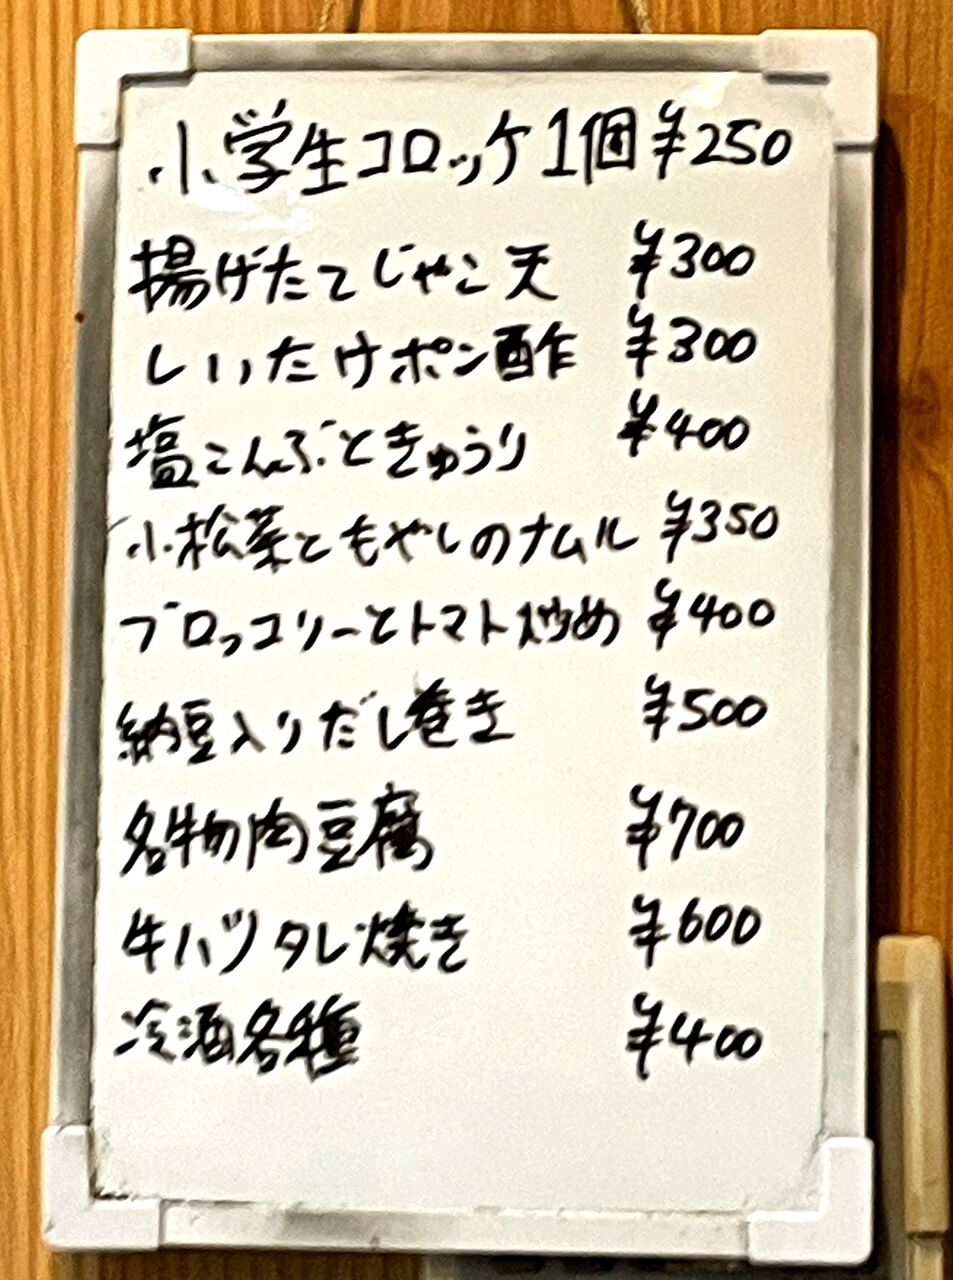 小学生コロッケ1個 ¥250
揚げたてじゃこ天 ¥300
しいたけポン酢 ¥300
塩こんぶときゅうり ¥400
小松菜ともやしのナムル ¥350
ブロッコリーとトマト炒め ¥400
納豆入りだし巻き ¥500
名物肉豆腐 ¥700
牛ハツタレ焼き ¥600
冷酒各種 ¥400